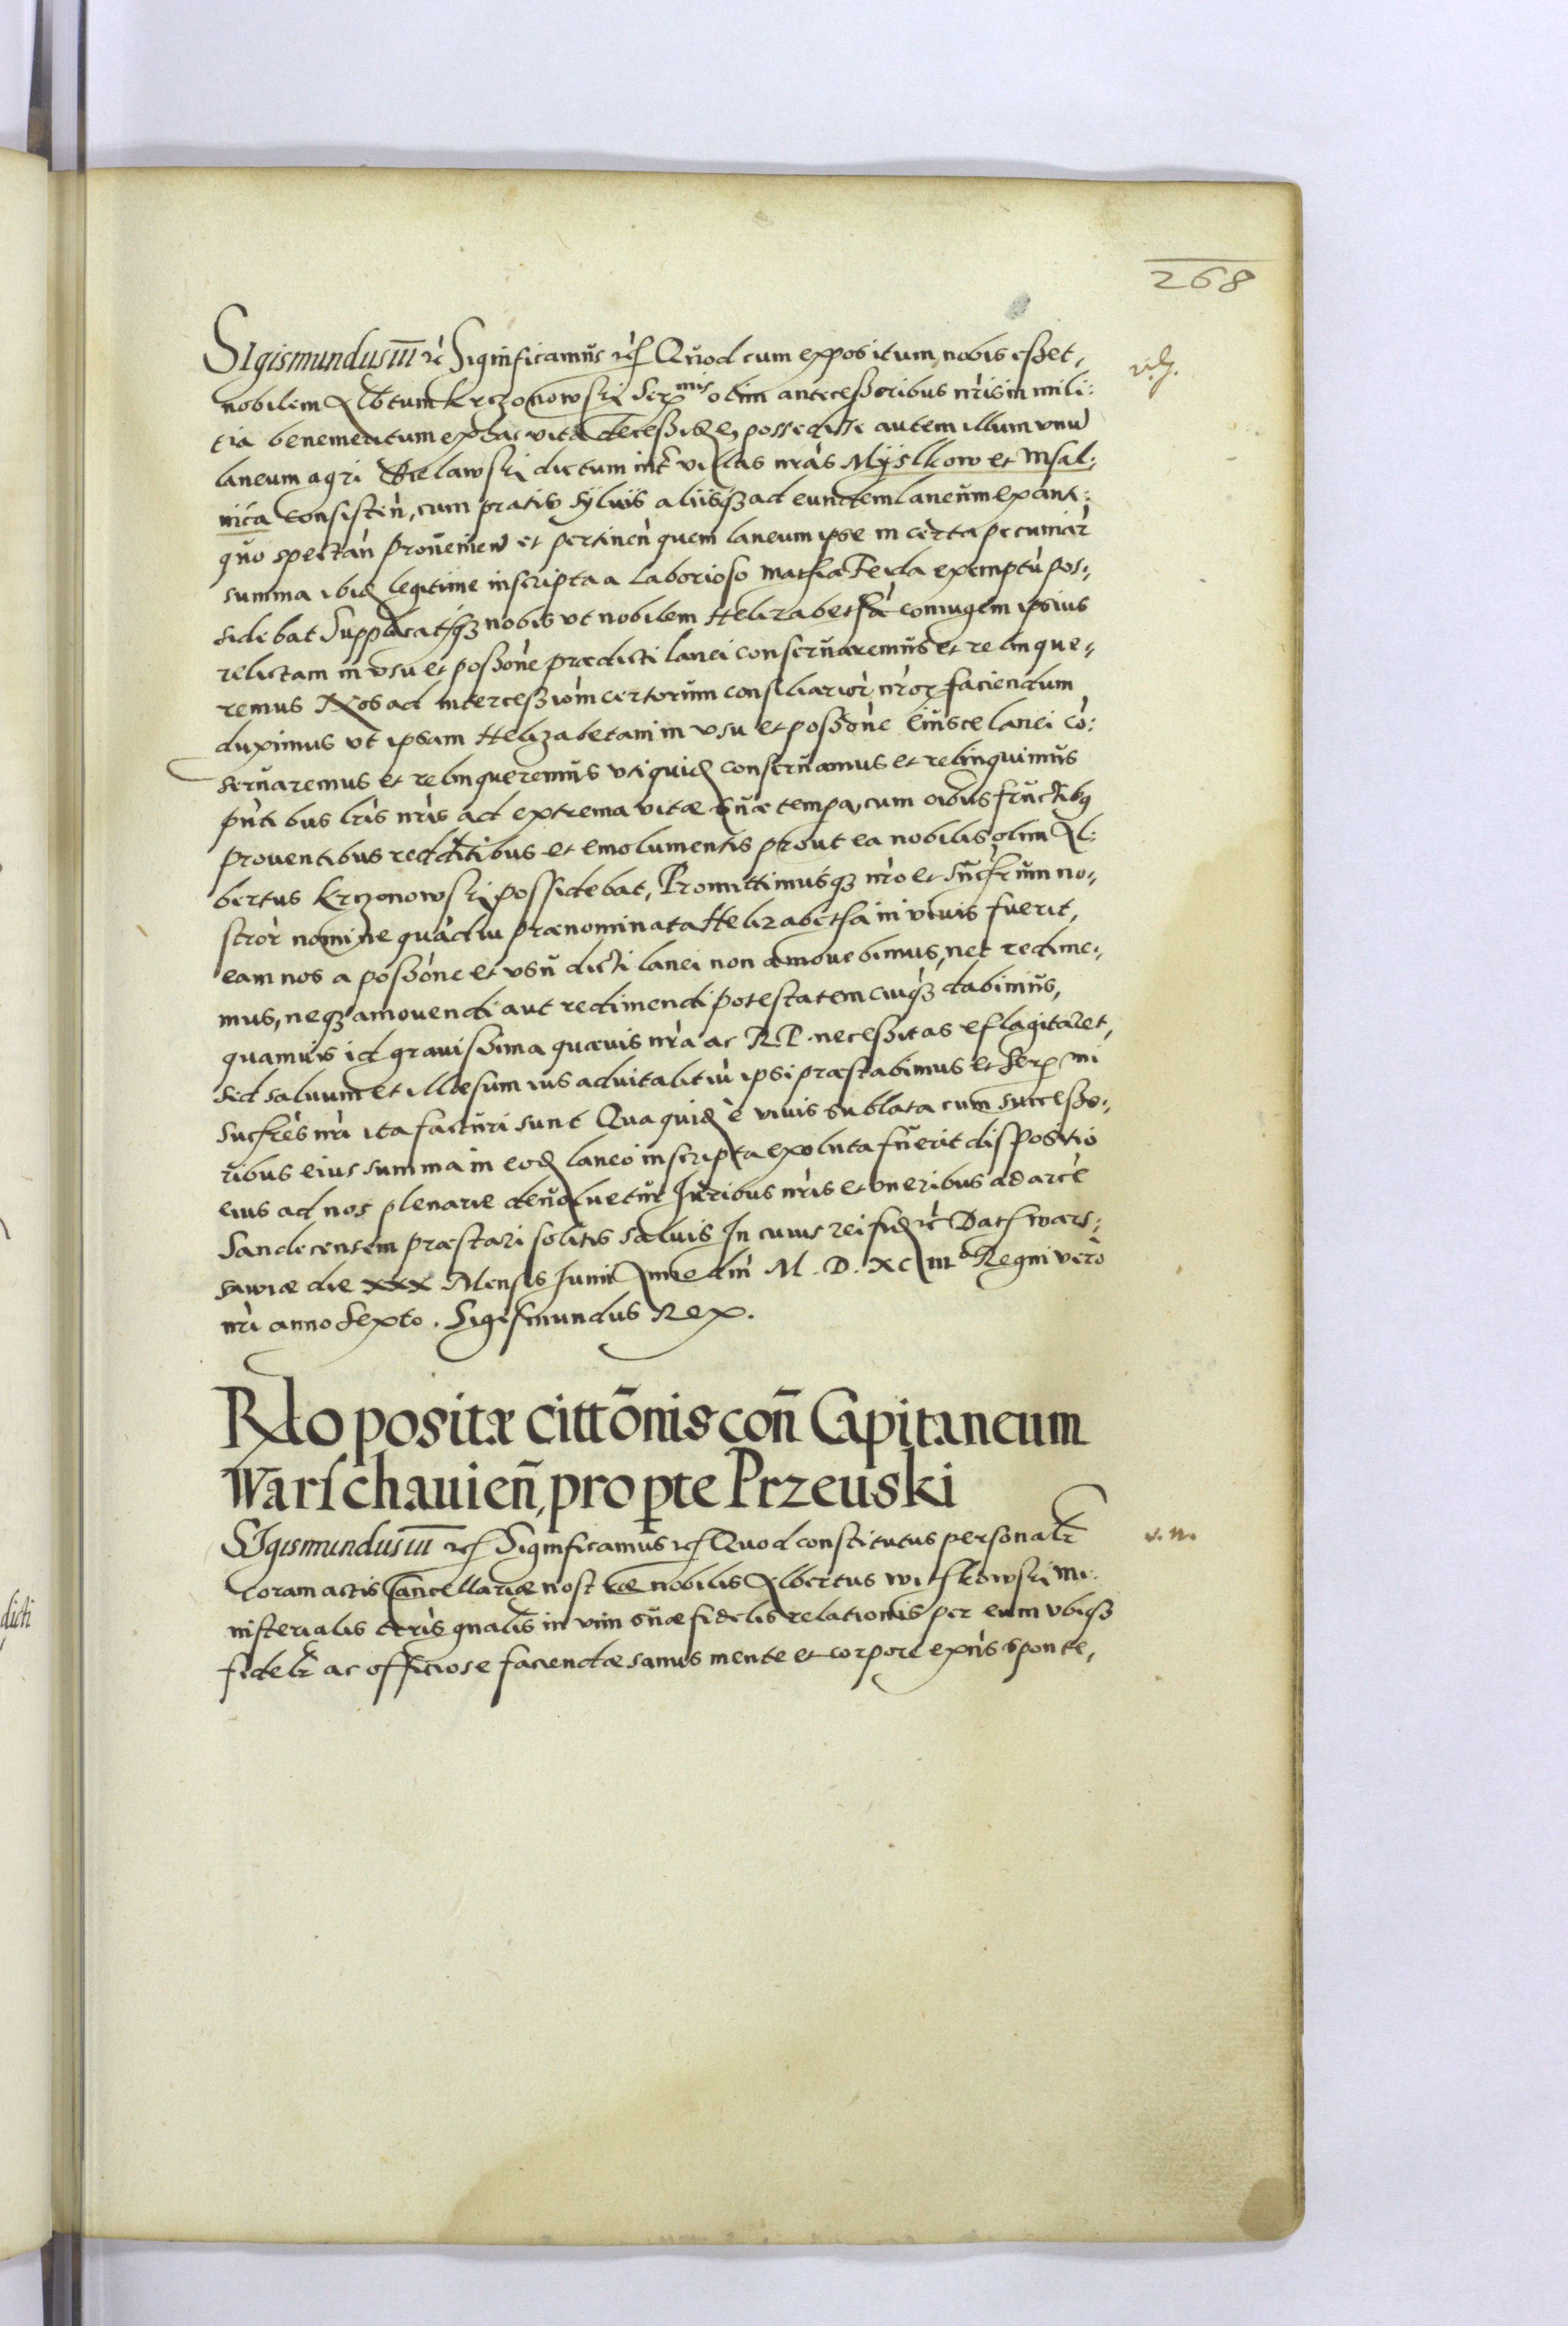 268
SIgismundus III rc Significamus rc Quod cum expositum nobis esset,
nobilem Albtum Krczonowski Ser mis olim antecessoribus nris in mili:
tia benemeritum ex hac vita decessisse, possedisse autem illum unū
laneum agri Bielawski dictum intr villas nras Myslkow et Msal:
nica consisten, cum pratis sylvis aliisqz ad eundem laneum ex anti:
quo spectan provenien et pertinen quem laneum ipse in certa pecuniar
summa ibid legitime inscripta a laborioso Mathia Feida exemptū pos:
sidebat Supplicatqz nobis ut nobilem Helizabetha coniugem ipsius
relictam in usu et possone prædicti lanei conservaremus et relinque:
remus Nos ad intercessiom certorum consiliarior nror faciendum
duximus ut ipsam Helizabetam in usu et possone eiusce lanei cō:
servaremus et relinqueremus utiquid conservamus et relinquimus
pntibus lris nris ad extrema vitæ suæ tempa, cum oibus fructibq
proventibus redditibus et emolumentis prout ea nobilis olim Al:
bertus Krczonowski possidebat, Promittimusqz nro et Succrum no:
stror nomine quādiu prænominata Helizabetha in vivis fuerit,
eam nos a possone et usu dicti lanei non amovebimus, nec redime:
mus, neqz amovendi aut redimendi potestatem cuiqz dabimus,
quamvis id gravissima quævis nra ac R.P. necessitas eflagitaret,
sed salvum et illæsum ius advitalitiū ipsi præstabimus et Ser mi
Succres nri ita facturi sunt Qua quid è vivis sublata cum successo:
ribus eius summa in eod laneo inscripta exoluta fuerit dispositio
eius ad nos plenarie devolvetur Iuribus nris et oneribus ad arcē
Sandecensem præstari solitis salvis In cuius rei fid rc Dat Wars:
saviæ die XXX Mensis Iunii Anno dni M. D. XC III o Regni vero
nri anno Sexto. Sigismundus Rex.
Rlao positæ cittōnis coñ Capitaneum
Warschavieñ, pro pte Przeuski
SIgismundus III rc Significamus rc Quod constitutus personalr
coram actis Cancellariæ nostræ nobilis Albertus Witkowski mi:
nisterialis terris gnalis in vim suæ fidelis relationis per eum ubiqz
fidelr ac officiose faciendæ sanus mente et corpore exns sponte,
v. n.
dicti